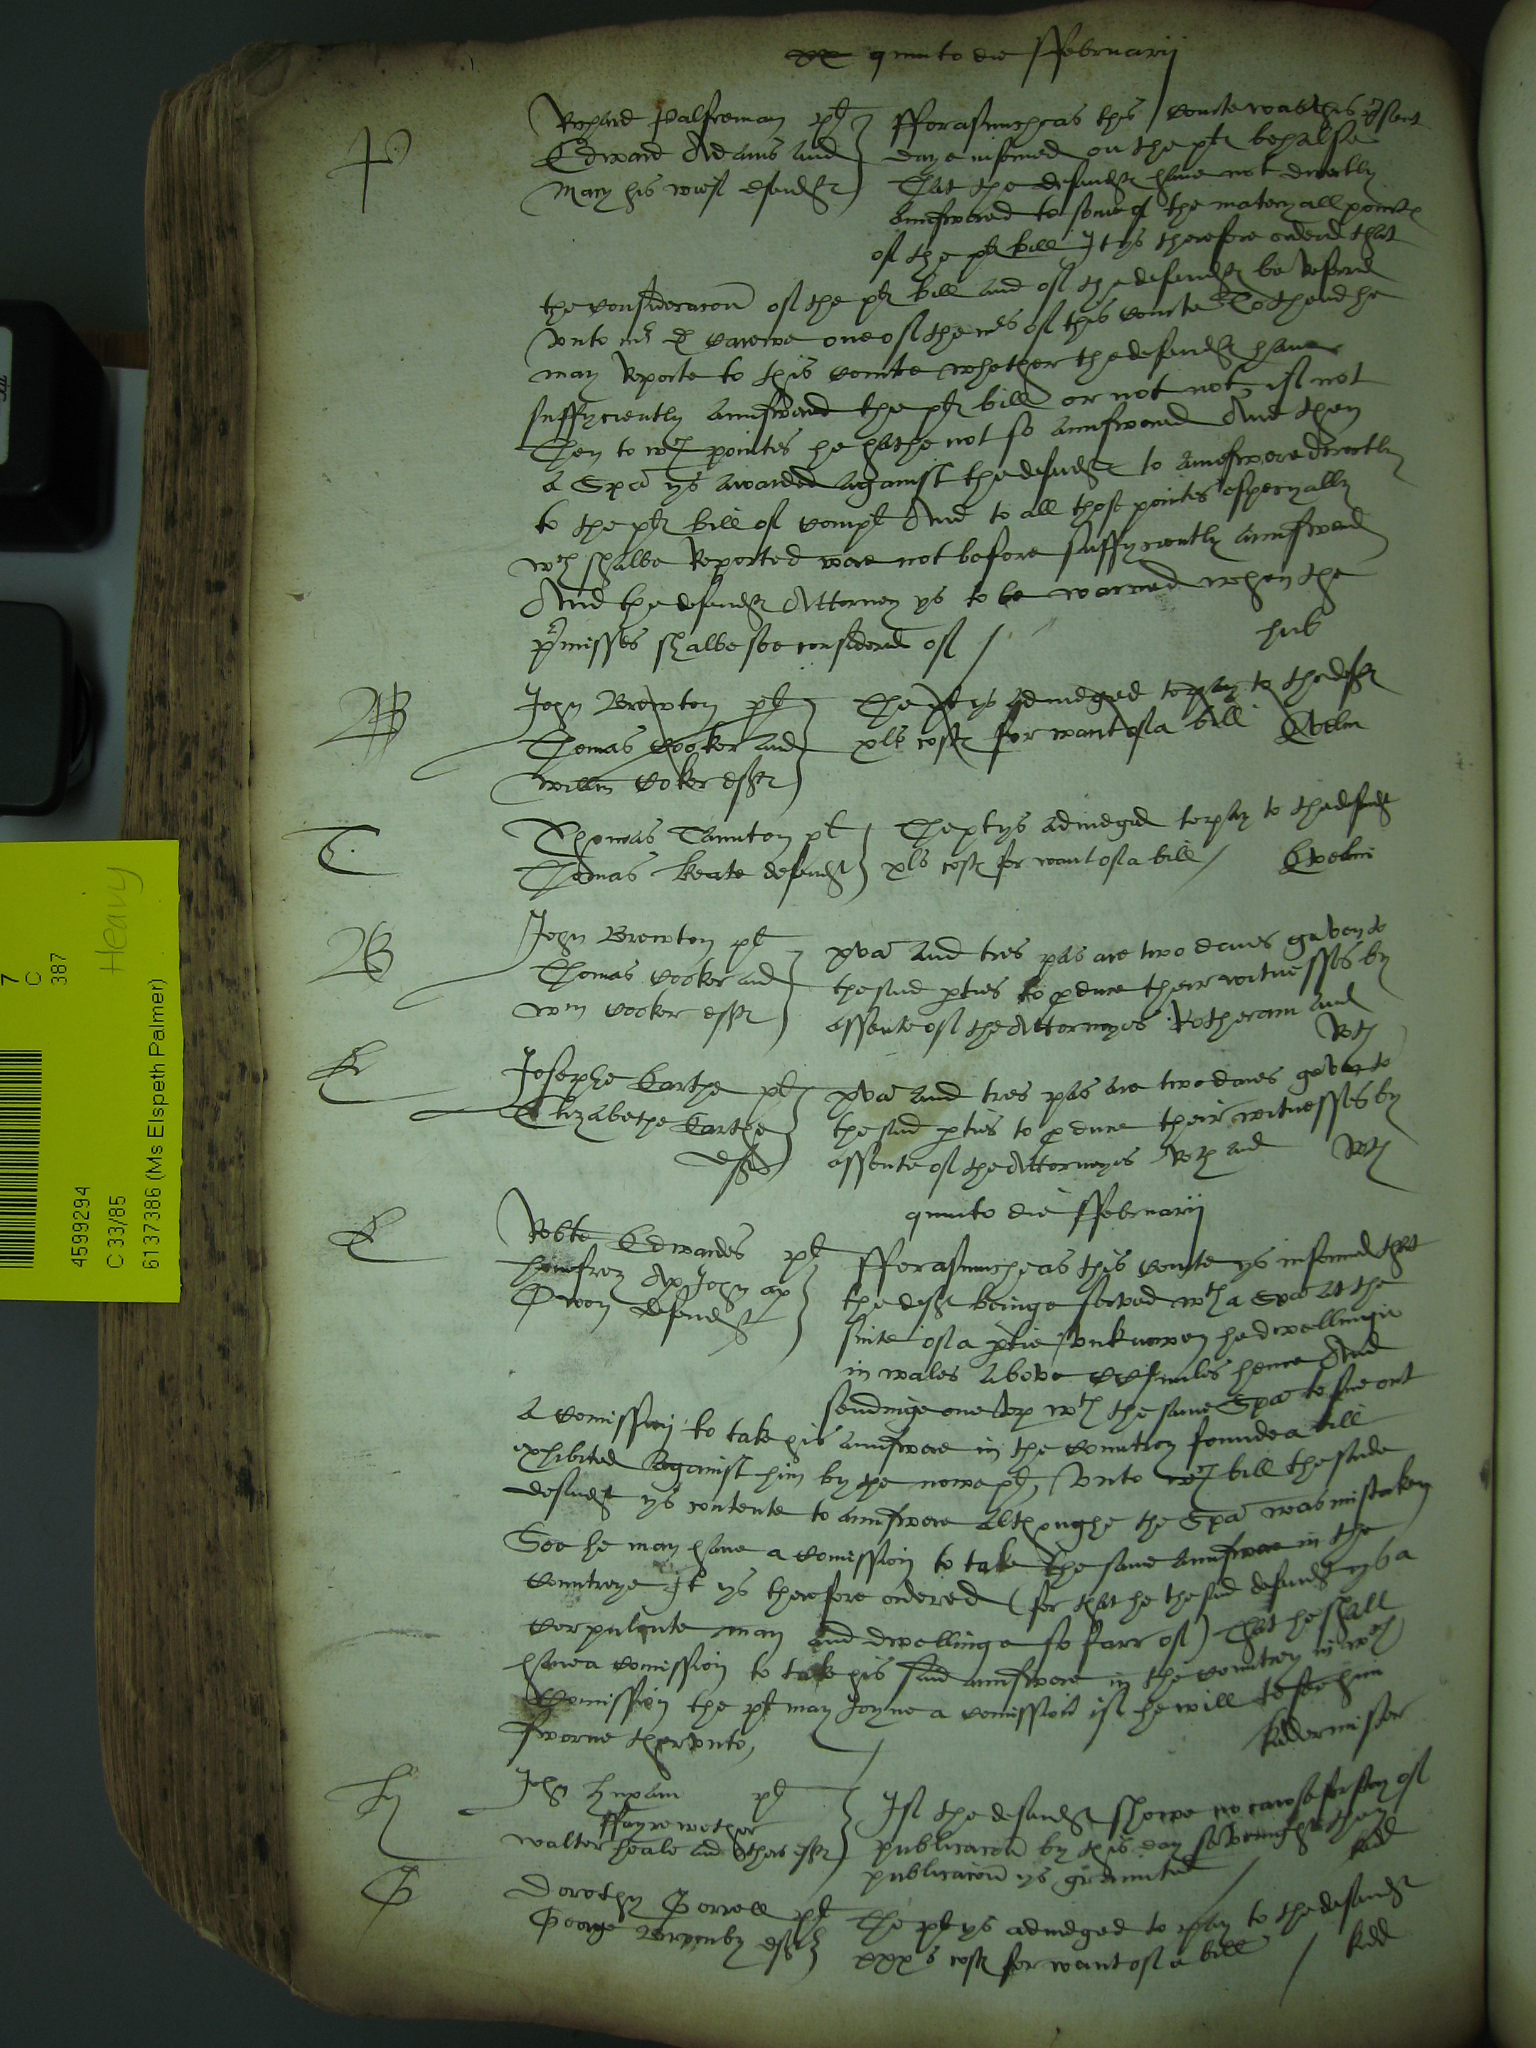 quinto die ffebruarii
P
Richard Palfreman plt
Edward Adams and
Mary his wief defendtes
fforasmucheas this Courte was this psent
daye informed on the pltes behalfe
That the defendtes have not directly
aunswered to some of the materyall pointes
of the pltes bill It ys therefore ordered that
the consideracon of the pltes bill and of the defendtes be Referred
vnto mr D Carewe one of the mrs of this Courte To thend he
may Reporte to this Courte whether the defendtes have
suffycyently aunswered the pltes bill or not not, if not
Then to wch pointes he hathe not so aunswered And then
A Spa ys awarded against the defendtes to aunswere directly
to the pltes bill of complt And to all those pointes especyally
wch shalbe Reported were not before suffycyently aunswered
And the defendtes Attorney ys to be warned when the
pmisses shalbe soe considered of /
hub
B
John Brewton plt
Thomas Cooker and
Willm Coker deftes
The plt ys adiudged to pay to the deftes
xls costes for want of a bill
Evelin
T
Thomas Taunton plt
Thomas Keate defendt
The plt ys adiudged to pay to the defendt
xls costes for want of a bill /
Evelin
B
John Brewton plt
Thomas Cooker and
Wm Cooker deftes
xva and tres pas are two daies geven to
the said pties to pduce their witnesses by
assente of the Attorneyes Rotheram and
Roth
E
Josephe Earthe plt
Elizabethe Earthe
deft
xva and tres pas are two daies geven to
the said pties to pduce their witnesses by
assente of the Attorneyes Roth and
Roth
quinto die ffebruarii
E
Robte Edwardes plt
Humfrey Ap John ap
Owen defendt
fforasmucheas this Courte ys informed that
the deft beinge served wth a Spa at the
suite of a ptie vnknowen he dwellinge
in wales above miles hence And
sendinge one vp wth the same Spa to sue out
A Comission to take his aunswere in the Countrey founde a bill
exhibited Against him by the nowe plt, Vnto wch bill the saide
defendt ys contente to aunswere althoughe the Spa was mistaken
Soe he may have a Comission to take the same aunswere in the
Countreye It ys therefore ordered (for that he the said defendt ys a
Corpulente man and dwellinge so farr of) That he shall
have a Comission to take his said aunswere in the Countrey in wch
Comission the plt may Joyne a Comission if he will to see him
sworne therevnto,
Kiddermister
Hy
John plt
ffayrewether
Walter Heale and others deftes
If the defendtes showe no cawse for stay of
publicacon by this day sevenight then
publicacon ys graunted
Kidd
G
Dorothy Gorrell plt
George deftes
The plt ys adiudged to pay to the defendt
xxxs costes for want of a bill /
Kidd
4599294
C 33/85
6137386 (Ms Elspeth Palmer)
7
C
387
Heavy